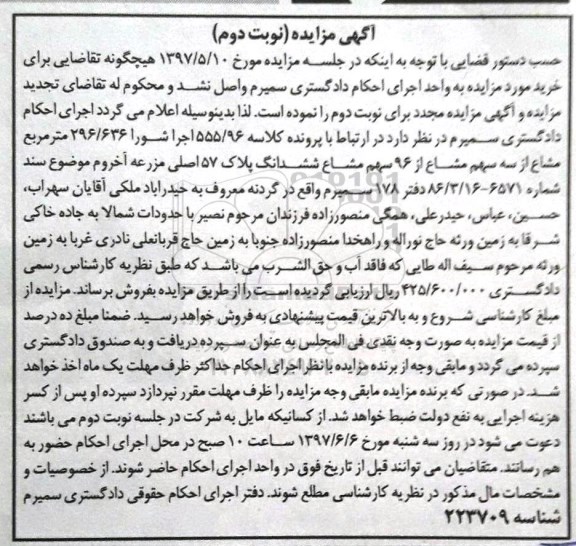 آگهی مزایده (نوبت دوم)
حسب دستور قضایی با توجه به اینکه در جلسه مزایده مورخ ۱۳۹۷/۵/۱۰ هیچگونه تقاضایی برای
خرید مورد مزایده به واحد اجرای احکام دادگستری سمیرم واصل نشد و محکوم له تقاضای تجدید
مزایده و آگهی مزایده مجدد برای نوبت دوم را نموده است. لذا بدینوسیله اعلام می گردد اجرای احکام
دادگستری سمیرم در نظر دارد در ارتباط با پرونده کلاسه ۵۵۵/۹۶ اجرا شورا ۲۹۶/۶۳۶ مترمربع
مشاع از سه سهم مشاع از ۹۶ سهم مشاع ششدانگ پلاک ۵۷ اصلی مزرعه آخروم موضوع سند
شماره ۶۵۷۱-۸۶/۳/۱۶ دفتر ۱۷۸ سمیرم واقع در گردنه معروف به حیدراباد ملکی آقایان سهراب،
حسین، عباس، حیدرعلی، همگی منصورزاده فرزندان مرحوم نصیر با حدودات شمالا به جاده خاکی
شرقا به زمین ورثه حاج نوراله و راهخدا منصورزاده جنوبا به زمین حاج قربانعلی نادری غربا به زمین
ورثه مرحوم سیف اله طایی که فاقد آب و حق الشرب می باشد که طبق نظریه کارشناس رسمی
دادگستری ۴۲۵/۶۰۰/۰۰۰ ریال ارزیابی گردیده است را از طریق مزایده بفروش برساند. مزایده از
مبلغ کارشناسی شروع و به بالاترین قیمت پیشنهادی به فروش خواهد رسید. ضمنا مبلغ ده درصد
از قیمت مزایده به صورت وجه نقدی فی المجلس به عنوان سپرده دریافت و به صندوق دادگستری
سپرده می گردد و مابقی وجه از برنده مزایده با نظر اجرای احکام حداکثر ظرف مهلت یک ماه اخذ خواهد
شد. در صورتی که برنده مزایده مابقی وجه مزایده را ظرف مهلت مقرر نپردازد سپرده او پس از کسر
هزینه اجرایی به نفع دولت ضبط خواهد شد. از کسانیکه مایل به شرکت در جلسه نوبت دوم می باشند
دعوت می شود در روز سه شنبه مورخ ۱۳۹۷/۶/۶ ساعت ۱۰ صبح در محل اجرای احکام حضور به
هم رسانند. متقاضیان می توانند قبل از تاریخ فوق در واحد اجرای احکام حاضر شوند. از خصوصیات و
مشخصات مال مذکور در نظریه کارشناسی مطلع شوند. دفتر اجرای احکام حقوقی دادگستری سمیرم
شناسه ۲۲۳۷۰۹